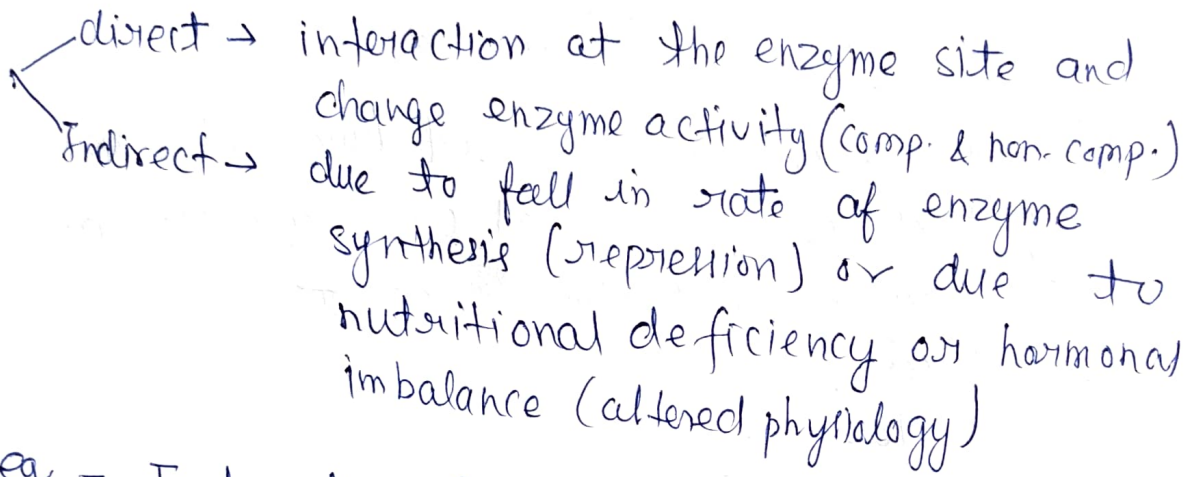 direct → interaction at the enzyme site and
change enzyme activity (comp. & non-comp.)
Indirect → due to fall in rate of enzyme
synthesis (repression) or due to
nutritional deficiency or harmonal
imbalance (altered physiology)
eg.